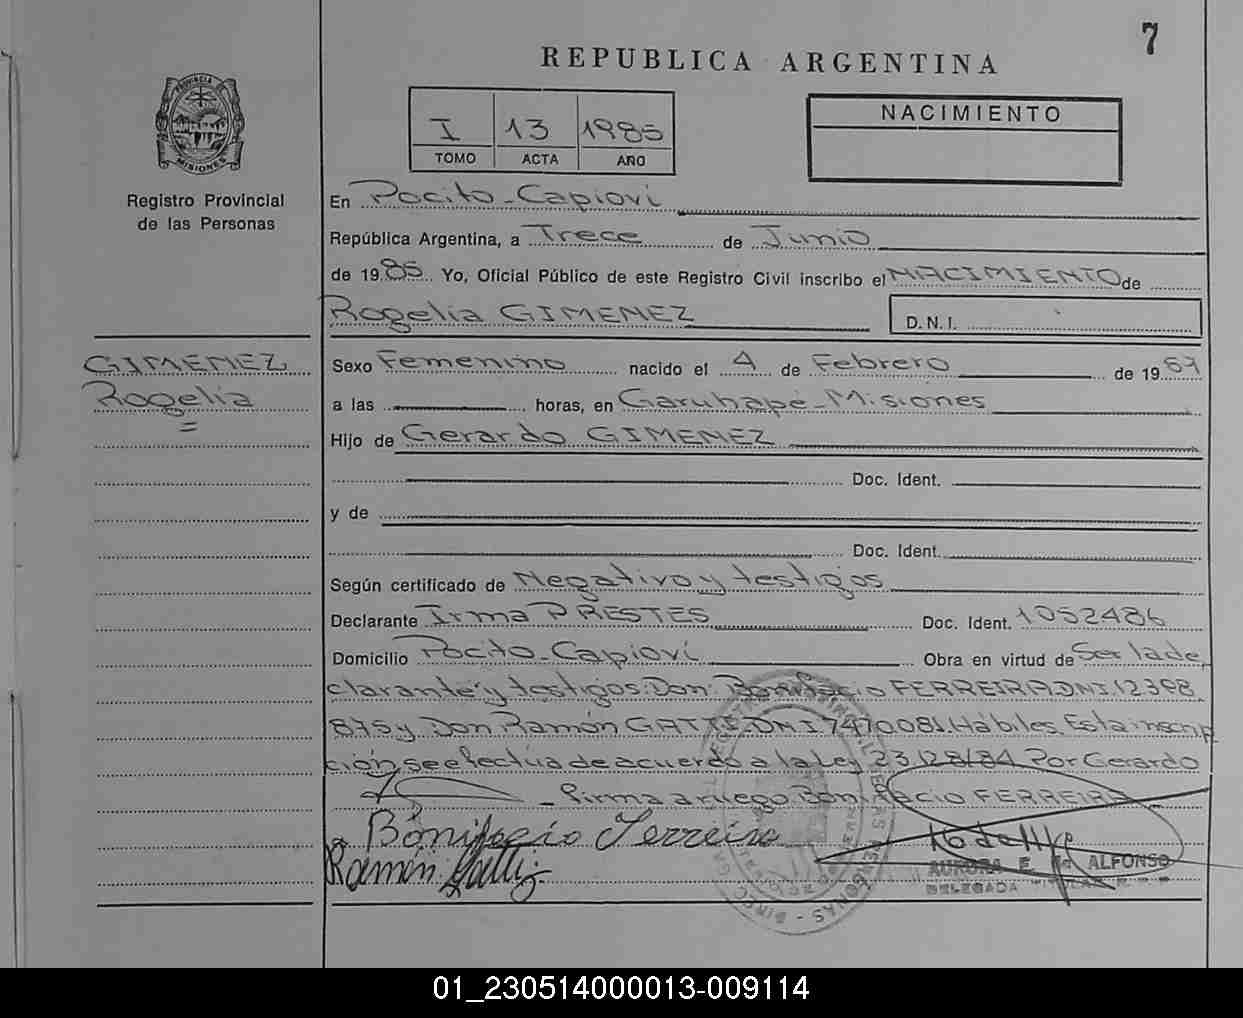 7
REPUBLICA ARGENTINA
PROVINCIA DE MISIONES
Registro Provincial
de las Personas
I 13 1985
TOMO ACTA AÑO
NACIMIENTO
En Pocito-Capioví
República Argentina, a Trece de Junio
de 1985 Yo, Oficial Público de este Registro Civil inscribo el NACIMIENTO de
Rogelia GIMENEZ D.N.I.
GIMENEZ
Rogelia
=
Sexo Femenino nacido el 4 de Febrero de 1967
a las horas, en Garuhapé-Misiones
Hijo de Gerardo GIMENEZ
Doc. Ident.
y de
Doc. Ident.
Según certificado de Negativo y testigos
Declarante Irma PRESTES Doc. Ident. 1052486
Domicilio Pocito-Capioví Obra en virtud de Ser la de
clarante y testigos: Don: Bonifacio FERREIRA DNI 12398
875 y Don Ramón GATTI DNI 7470081. Hábiles. Esta inscrip
ción se efectúa de acuerdo a la Ley 23.128/84 Por Gerardo
firma a ruego Bonifacio FERREIRA
Bonifacio Ferreira
Ramón Gatti
AURORA E. ALFONSO
DELEGADA TITULAR
01_230514000013-009114